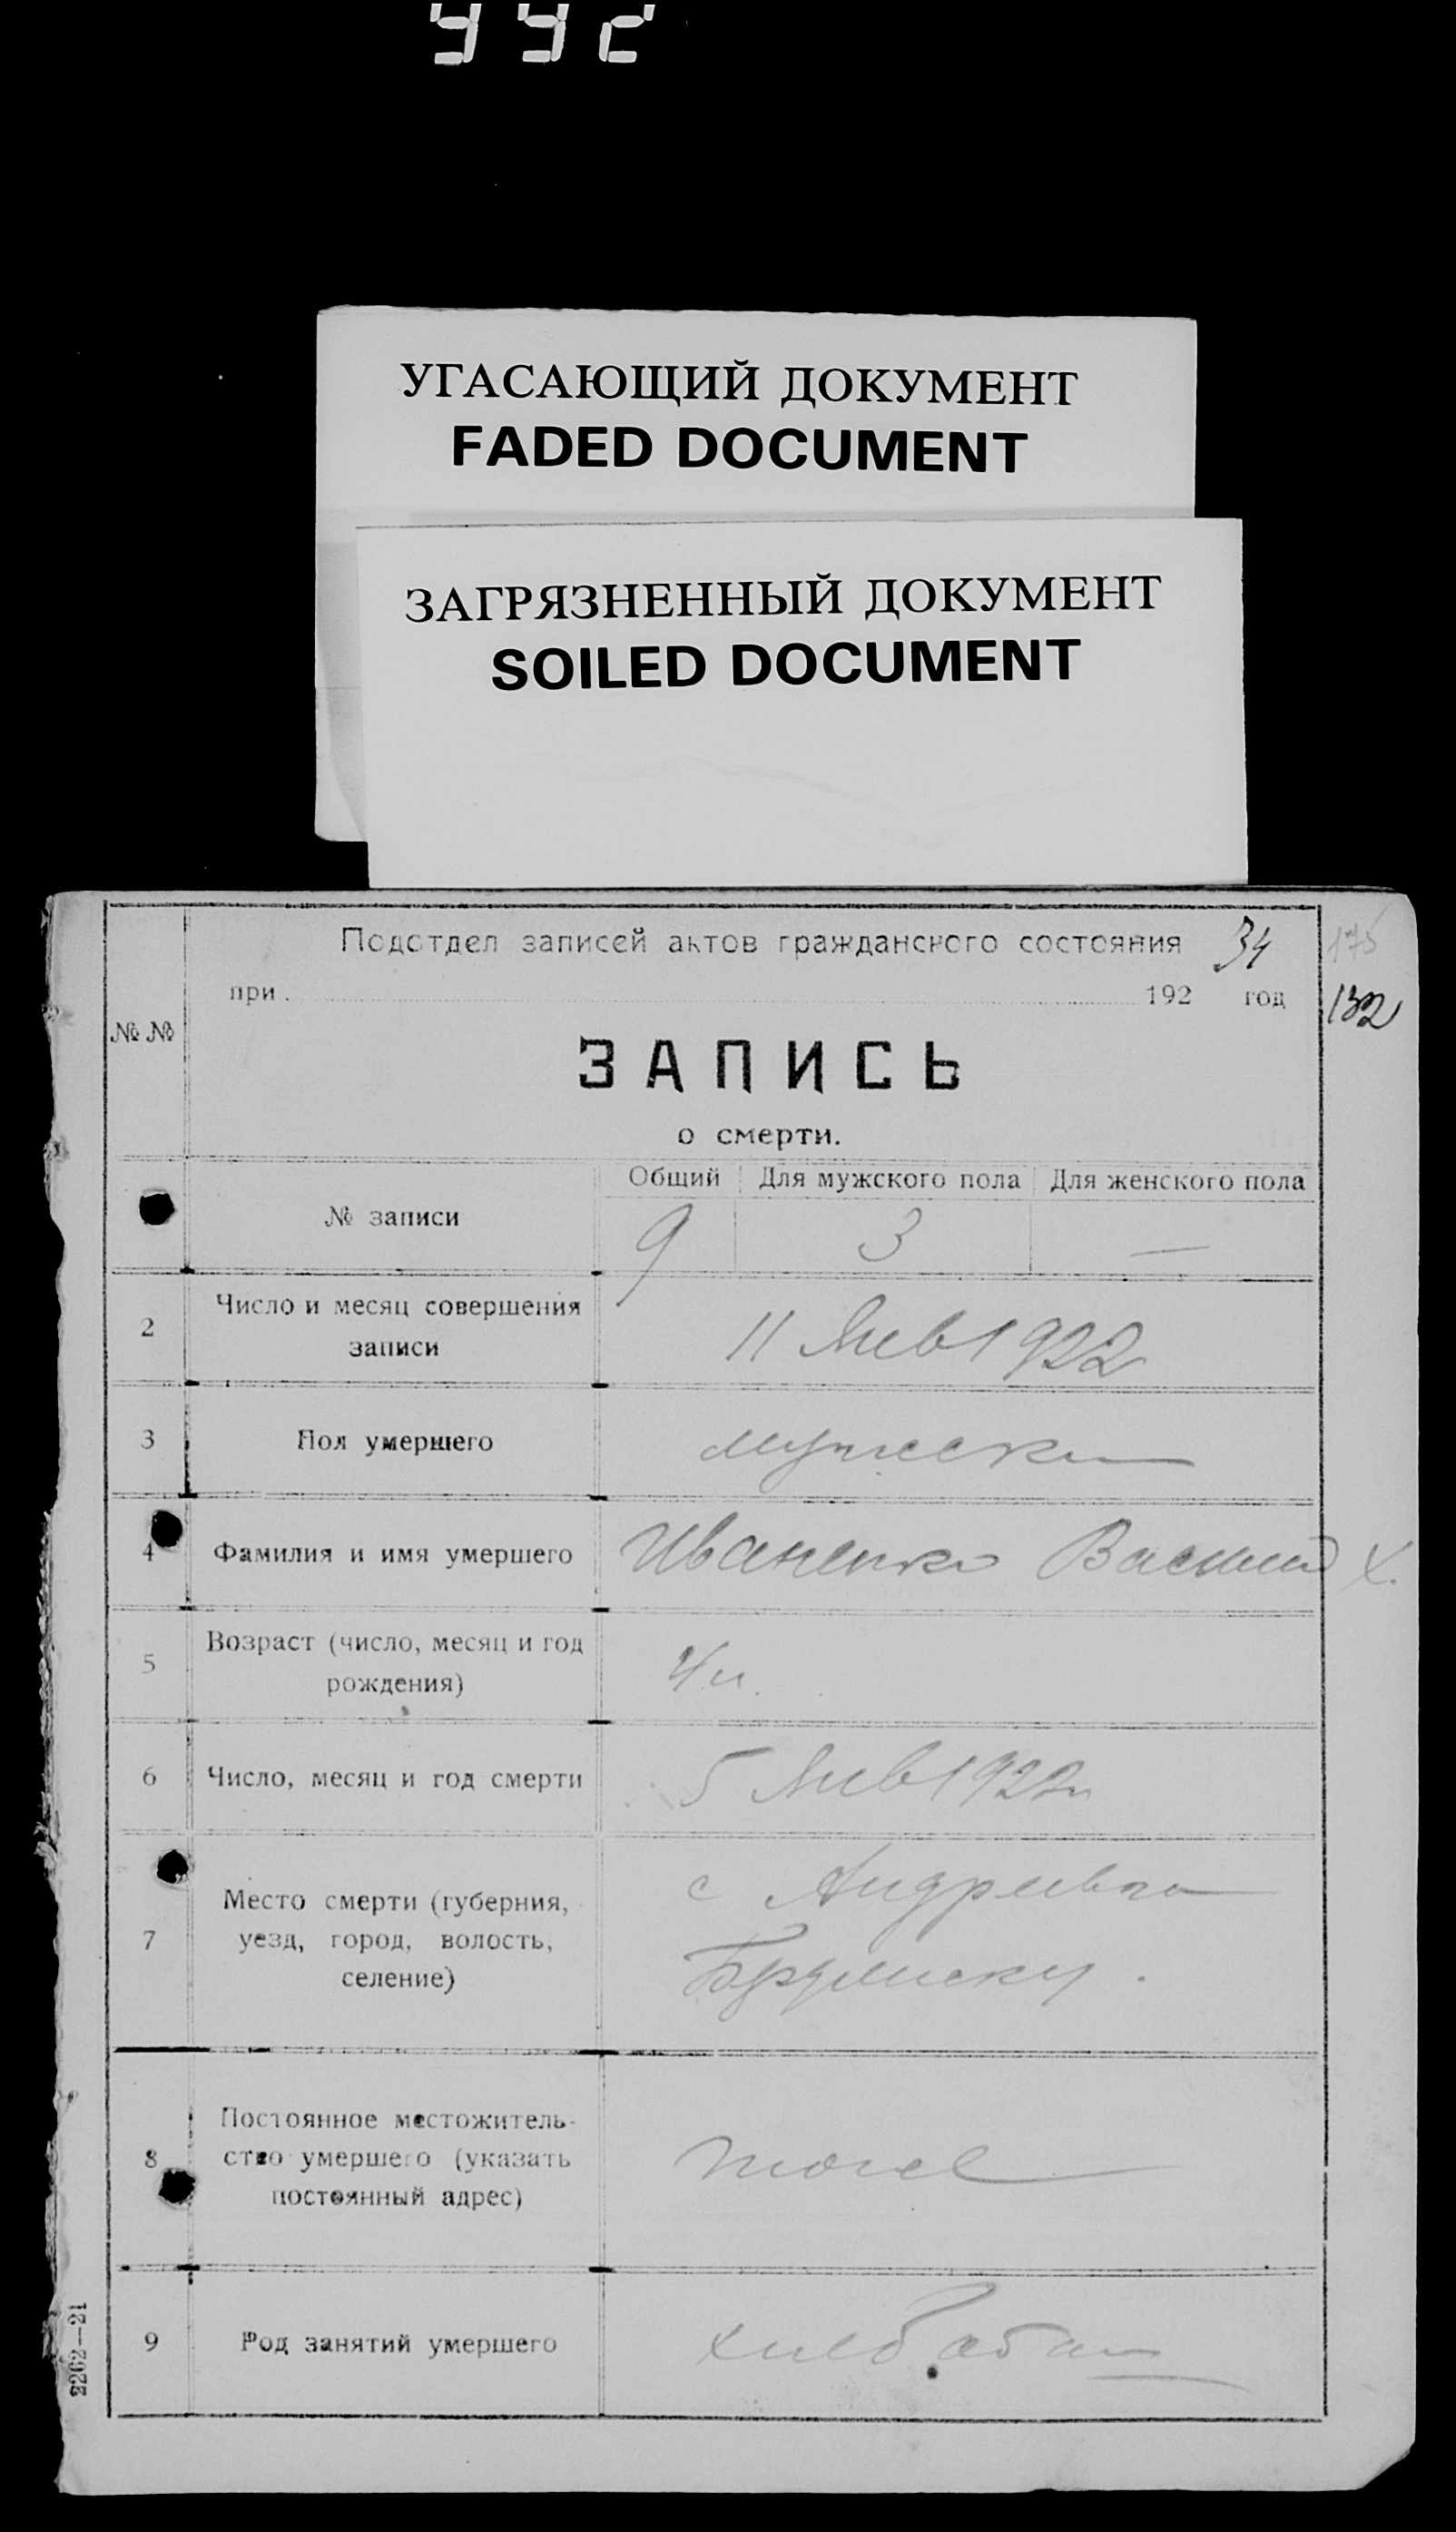 992
УГАСАЮЩИЙ ДОКУМЕНТ
FADED DOCUMENT
ЗАГРЯЗНЕННЫЙ ДОКУМЕНТ
SOILED DOCUMENT
Подотдел записей актов гражданского состояния 34 175
при 192 год 132
№ №
ЗАПИСЬ
о смерти.
Общий Для мужского пола Для женского пола
№ записи 9 3 —
2 Число и месяц совершения записи 11 Янв 1922
3 Пол умершего мужск
4 Фамилия и имя умершего Иваненко Василий Х.
5 Возраст (число, месяц и год рождения)
6 Число, месяц и год смерти 5 Янв 1922
7 Место смерти (губерния, уезд, город, волость, селение) с Андреевка
8 Постоянное местожительство умершего (указать постоянный адрес)
9 Род занятий умершего
2262—21